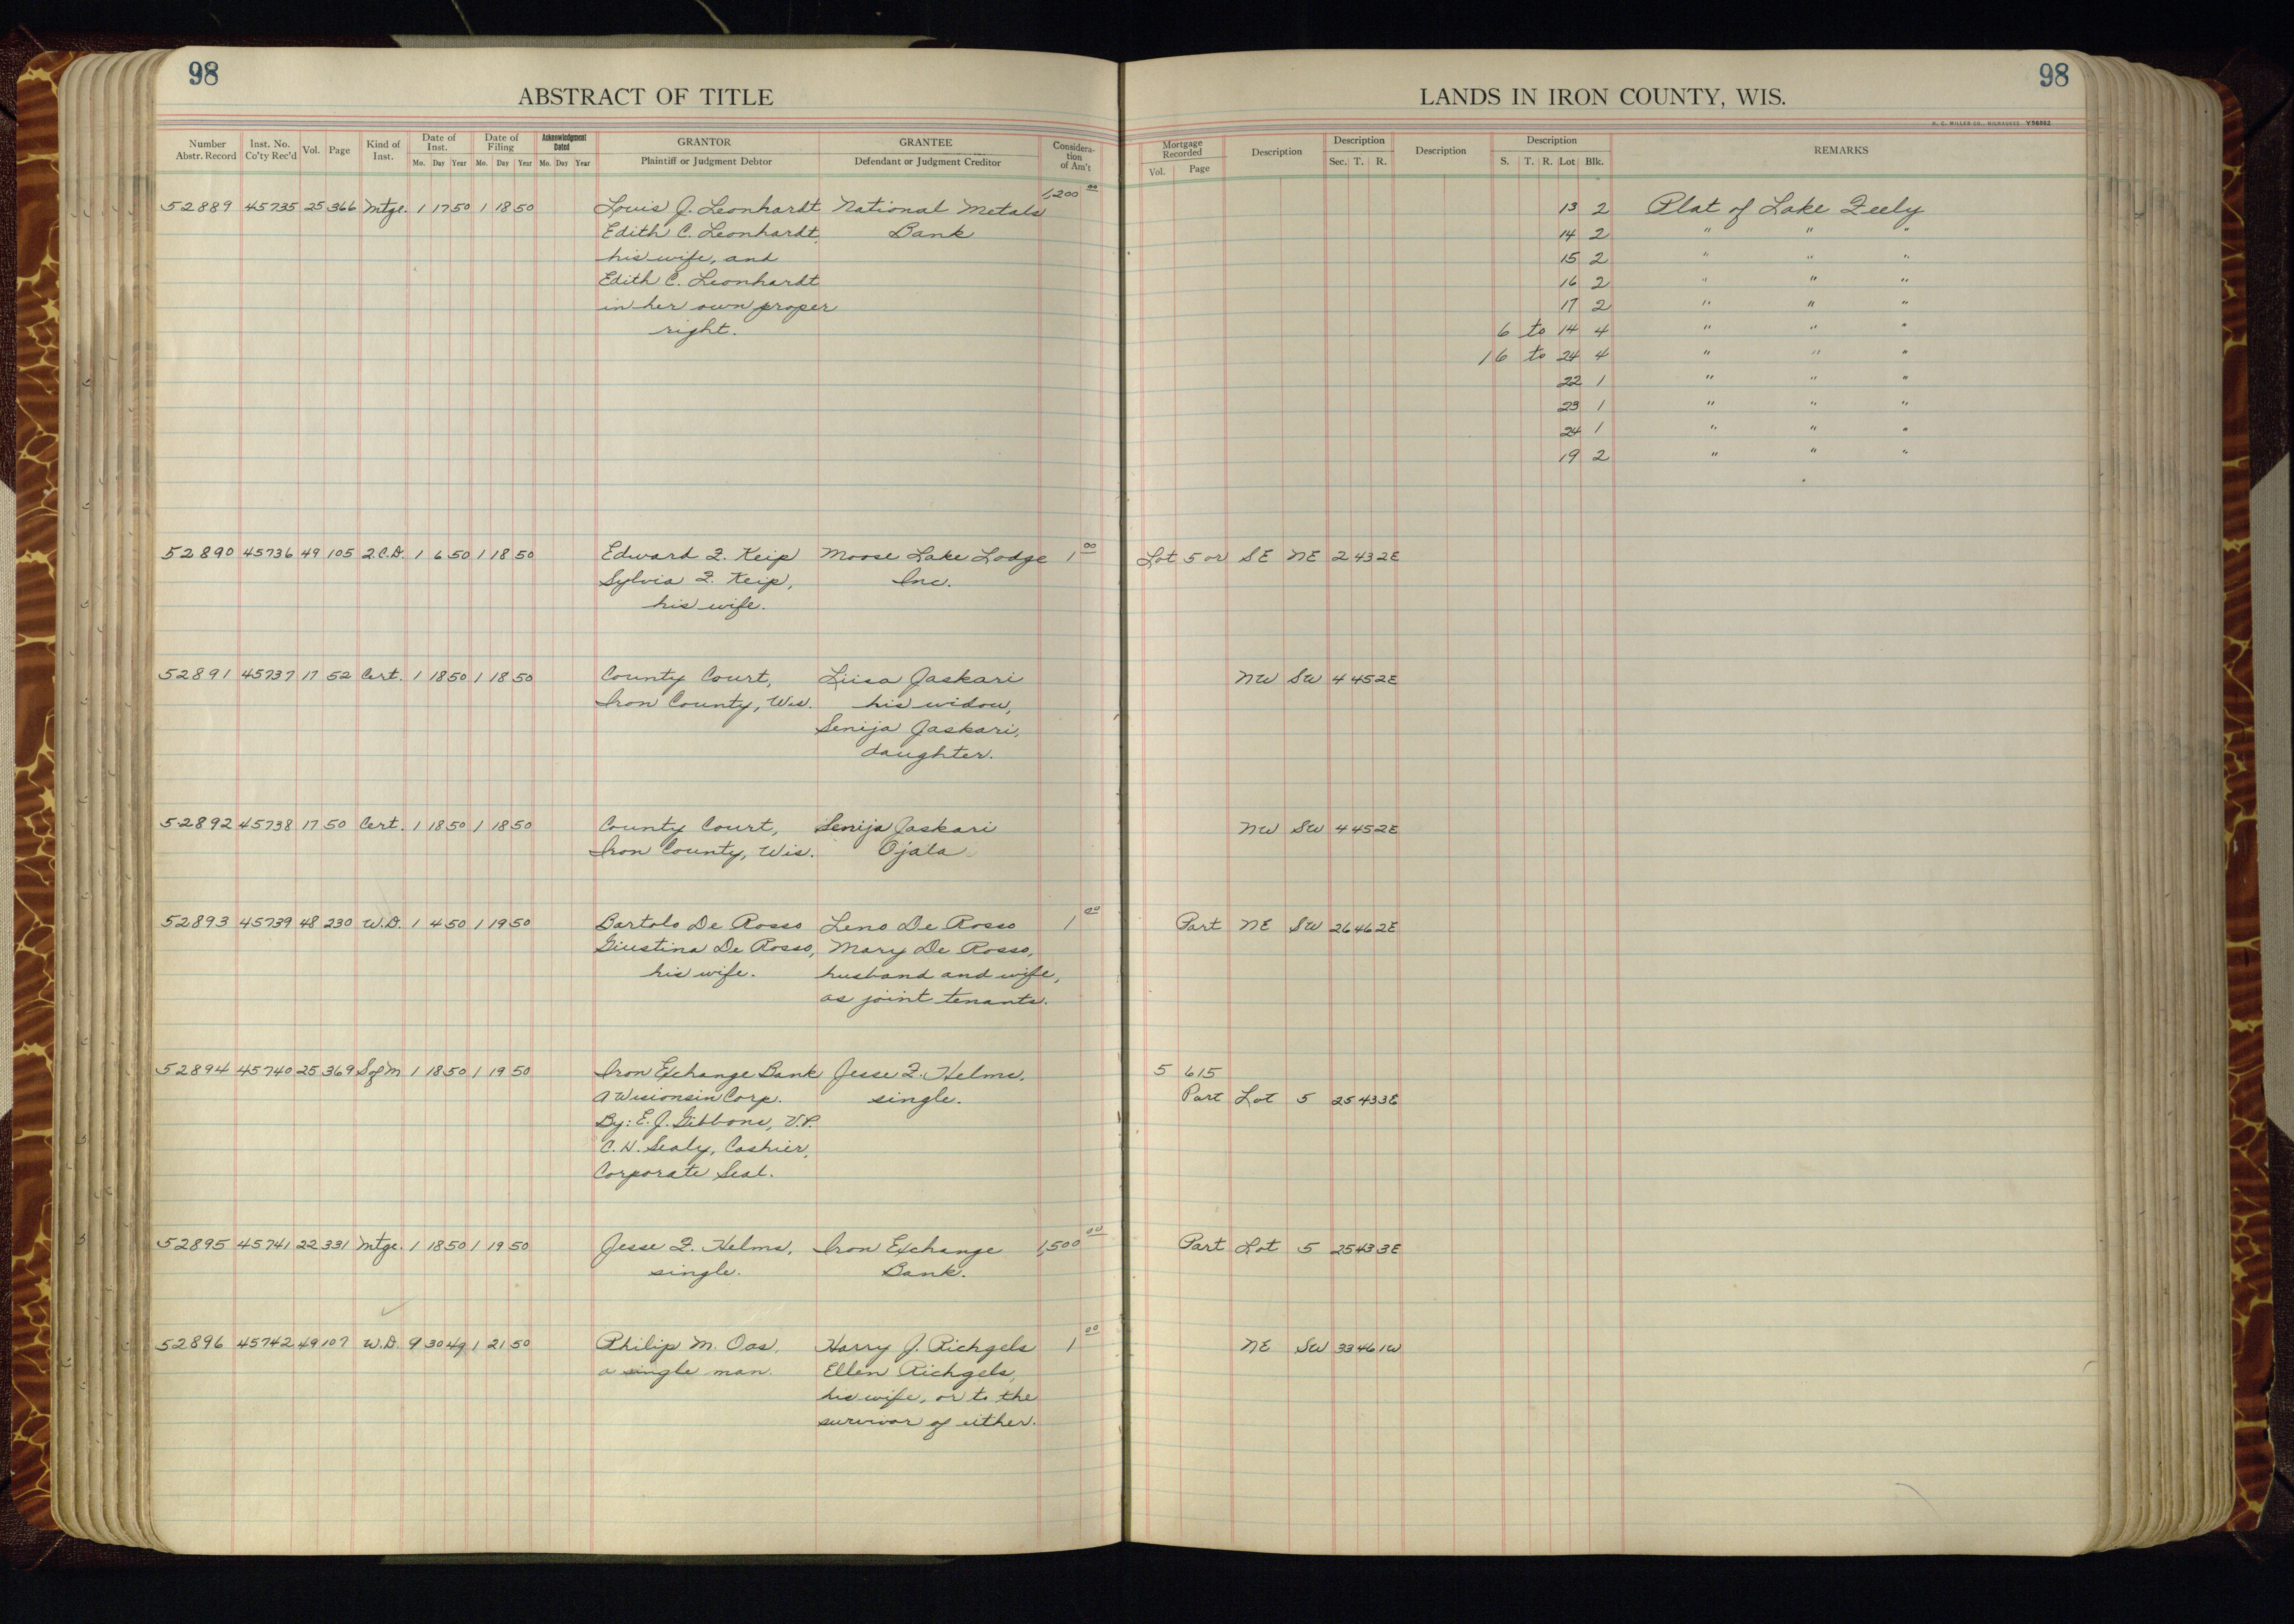 98
98
ABSTRACT OF TITLE
LANDS IN IRON COUNTY, WIS.
H. C. MILLER CO., MILWAUKEE Y56862
Number Abstr. Record Inst. No. Co'ty Rec'd Vol. Page Kind of Inst. Date of Inst. Mo. Day Year Date of Filing Mo. Day Year Acknowledgment Dated Mo. Day Year GRANTOR Plaintiff or Judgment Debtor GRANTEE Defendant or Judgment Creditor Considera-tion of Am't
Mortgage Recorded Vol. Page Description Description Sec. T. R. Description Description S. T. R. Lot Blk. REMARKS
52889 45735 25 366 Mtge. 1 17 50 1 18 50 Louis J. Leonhardt National Metals 1,200 00 13 2 Plat of Lake Zeely
Edith C. Leonhardt, Bank 14 2 " " "
his wife, and 15 2 " " "
Edith C. Leonhardt 16 2 " " "
in her own proper 17 2 " " "
right. 6 to 14 4 " " "
16 to 24 4 " " "
22 1 " " "
23 1 " " "
24 1 " " "
19 2 " " "
52890 45736 49 105 2.C.D. 1 6 50 1 18 50 Edward F. Keip Moose Lake Lodge 1 00 Lot 5 or SE NE 2 43 2E
Sylvia F. Keip, Inc.
his wife.
52891 45737 17 52 Cert. 1 18 50 1 18 50 County Court, Liisa Jaskari NW SW 4 45 2E
Iron County, Wis. his widow,
Senija Jaskari,
daughter.
52892 45738 17 50 Cert. 1 18 50 1 18 50 County Court, Senija Jaskari NW SW 4 45 2E
Iron County, Wis. Ojala
52893 45739 48 230 W.D. 1 4 50 1 19 50 Bartolo De Rosso Leno De Rosso 1 00 Part NE SW 26 46 2E
Giustina De Rosso, Mary De Rosso,
his wife. husband and wife,
as joint tenants.
52894 45740 25 369 S of M 1 18 50 1 19 50 Iron Exchange Bank Jesse F. Helms, 5 615
A Wisconsin Corp. single. Part Lot 5 25 43 3E
By: E. J. Gibbons, V.P.
C. H. Sealy, Cashier,
Corporate Seal.
52895 45741 22 331 Mtge. 1 18 50 1 19 50 Jesse F. Helms, Iron Exchange 1,500 00 Part Lot 5 25 43 3E
single. Bank.
52896 45742 49 107 W.D. 9 30 49 1 21 50 Philip M. Oas, Harry J. Richgels 1 00 NE SW 33 46 1W
a single man. Ellen Richgels,
his wife, or to the
survivor of either.